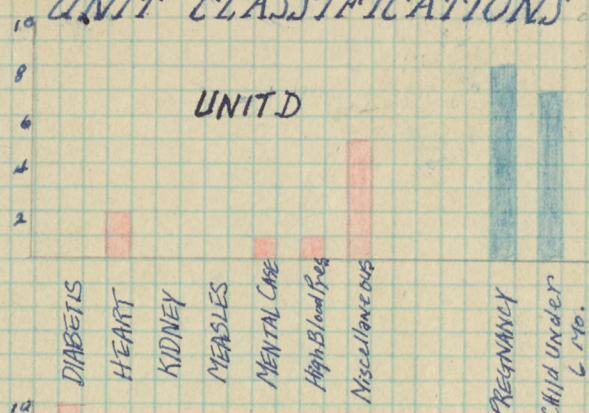 UNIT CLASSIFICATIONS
10
UNIT D
8
6
4
2
DIABETIS
HEART
KIDNEY
MEASLES
MENTAL CASE
High Blood Pres
Miscellaneous
PREGNANCY
Child Under
6 Mo.
10